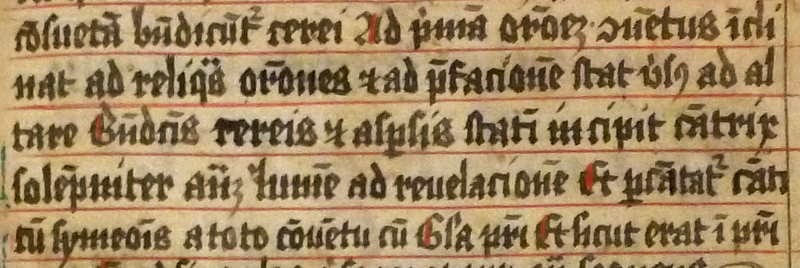 cōsuetā bn̄dicūt᷑ cerei Ad p̄mā or̄oeꝫ ꝯuētus īcli
nat ad reliq̄s or̄ones ⁊ ad p̄facionē stat v̄sꝰ ad al
tare Bn̄dcīs cereis ⁊ aspsis statī incipit cātrix
solēpniter an̄ꝫ lumē ad reuelacionē Et ꝑcātat᷑ cāti
cū symeoīs a toto cōuētu cū Gl̄a pr̄i Et sicut erat ī pr̄i